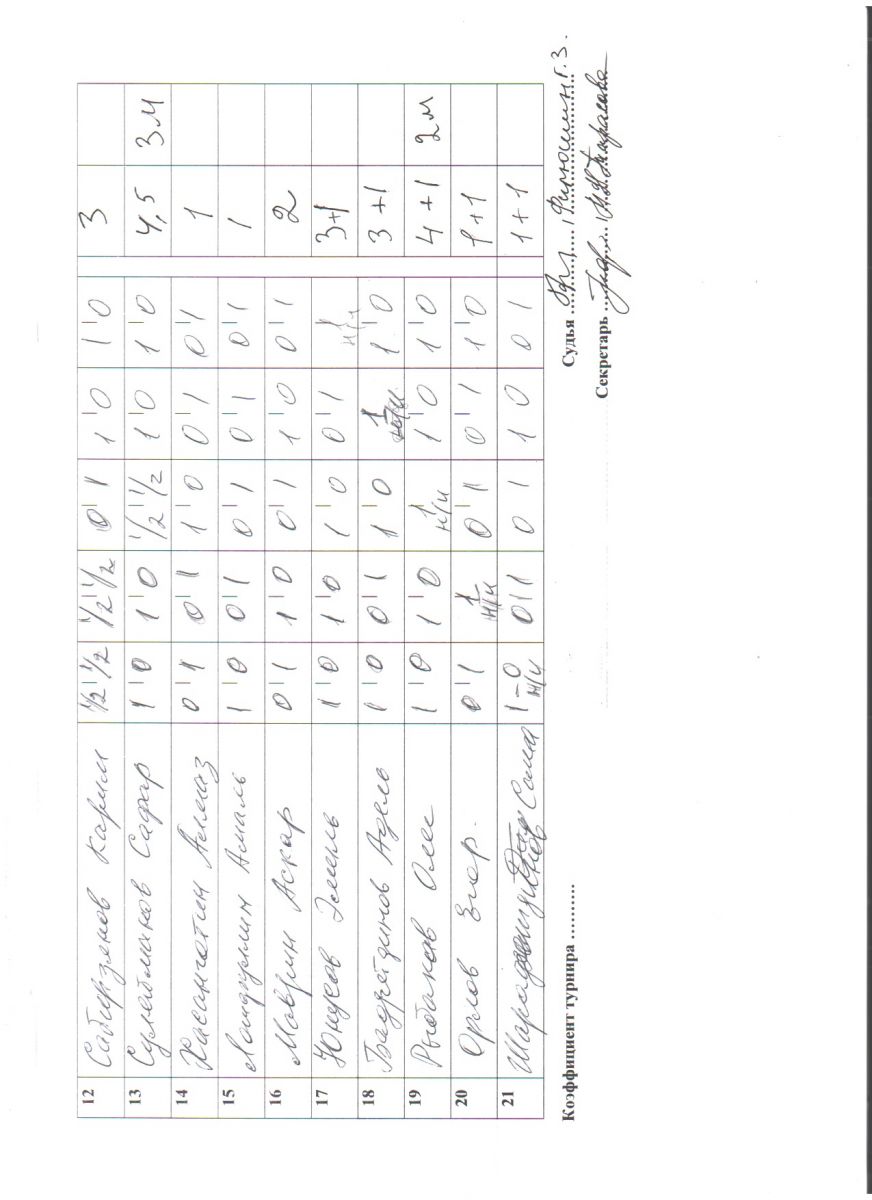 12 Сабирзянов Карим ½ ½ ½ ½ 0 1 1 0 1 0 3
13 Сулейманов Сафар 1 0 1 0 ½ ½ 1 0 1 0 4,5 3м
14 Хасангатин Алмаз 0 1 0 1 1 0 0 1 0 1 1
15 Амаль 1 0 0 1 0 1 0 1 0 1 1
16 Маврин Аскар 0 1 1 0 0 1 1 0 0 1 2
17 Юнусов Эмиль 1 0 1 0 1 0 0 1 1 н/и 3+1
18 Бадретдинов Адель 1 0 0 1 1 0 1 н/и 1 0 3+1
19 Рыбаков Олег 1 0 1 0 1 н/и 1 0 1 0 4+1 2м
20 Орлов Егор 0 1 1 н/и 0 1 0 1 1 0 1+1
21 1-0 н/и 0 1 0 1 1 0 0 1 1+1
Коэффициент турнира ...........
Судья
Секретарь